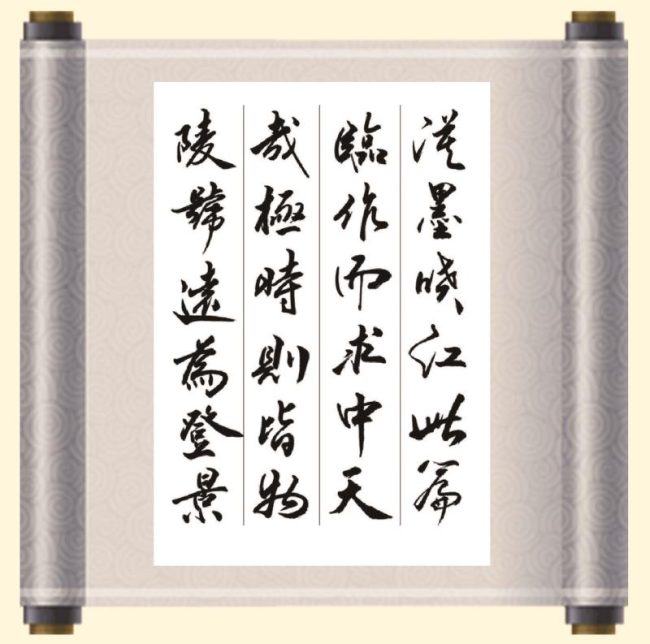 漢墨曉江此篇
臨作而求中天
哉極時則皆物
陵號遠為登景